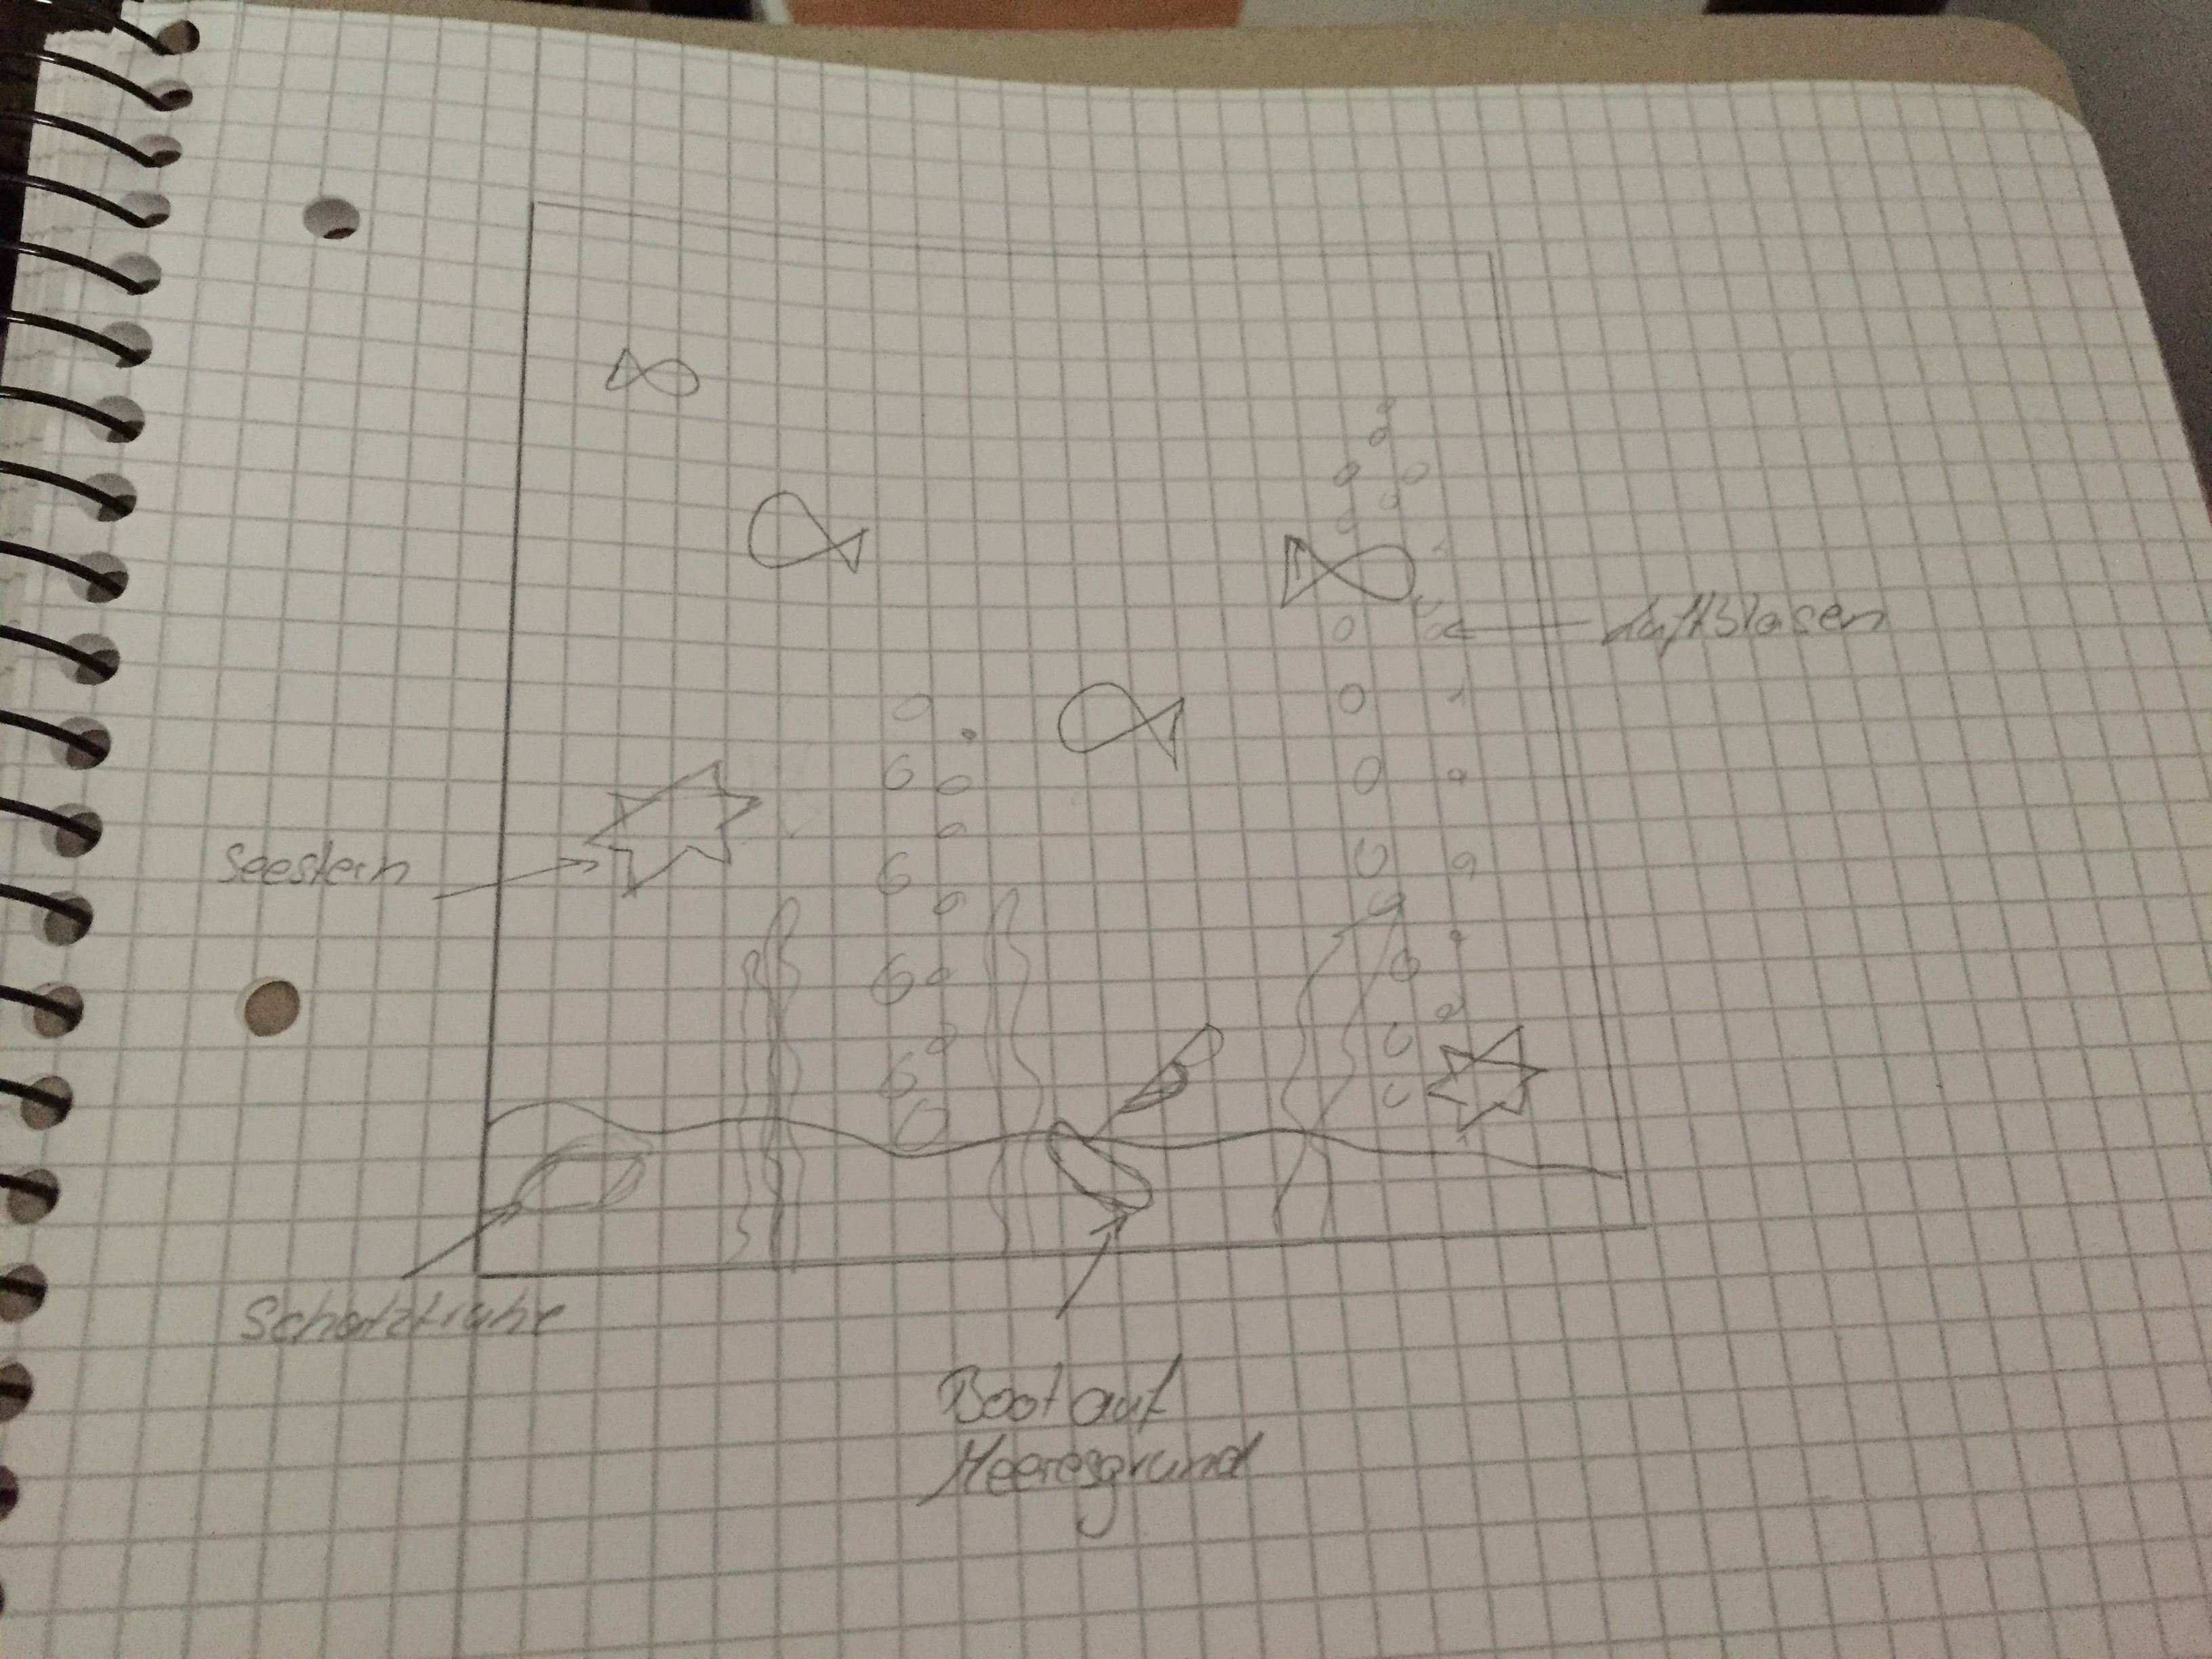 Luftblasen
Seestern
Schatztruhe
Boot auf
Meeresgrund